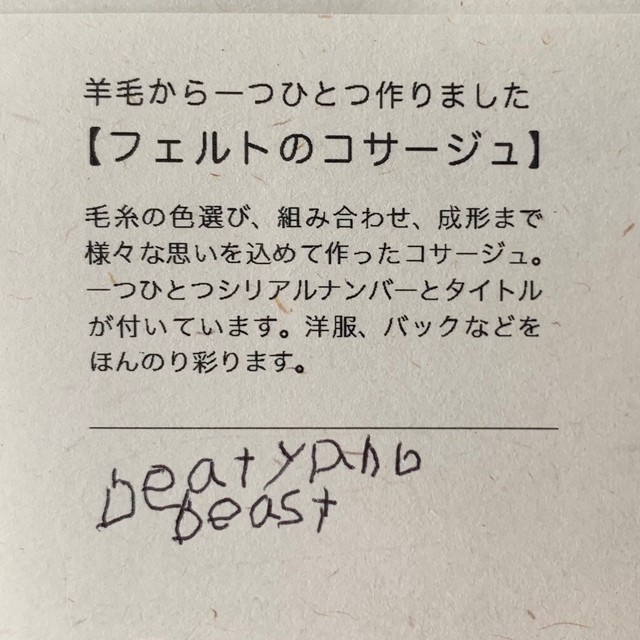 羊毛から一つひとつ作りました
【フェルトのコサージュ】
毛糸の色選び、組み合わせ、成形まで
様々な思いを込めて作ったコサージュ。
一つひとつシリアルナンバーとタイトル
が付いています。洋服、バックなどを
ほんのり彩ります。
beatyanb
beast